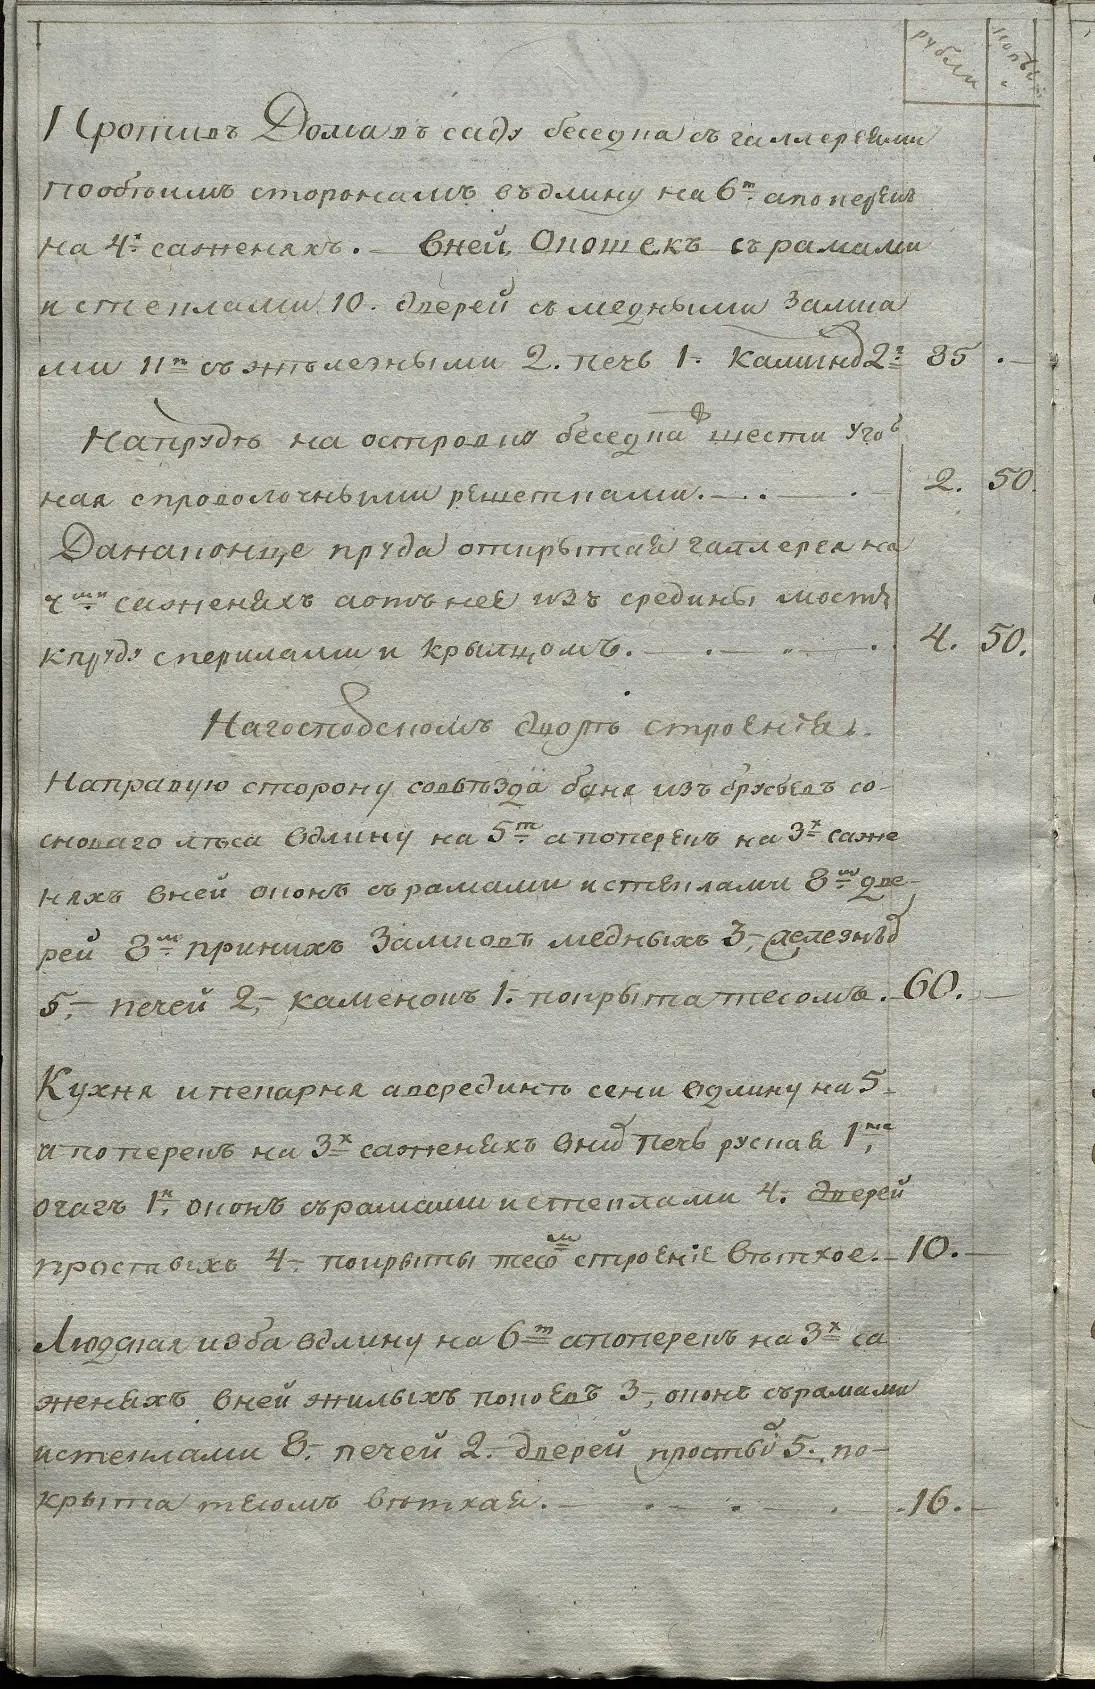 рубли копѣй
Противъ Дома въ саду беседка съ галлереями
пообѣимъ сторонамъ въ длину на 6т апоперекъ
на 4х саженяхъ. — вней окошекъ съ рамами
и стеклами 10. дверей съ медными замка
ми 11п съ жѣлезными 2. печь 1. каминовъ 2. 85 . —
Напрудѣ на островку беседка о шести уголь
ная спроволочными решетками. — . . — . — 2. 50.
Данаконце пруда открытая галлерея на
4ми саженяхъ аотъ нее изъ средины мостъ
кпруду сперилами и крылцомъ. — . — „ — . . 4. 50.
Нагосподскомъ дворѣ строения.
Направую сторону совъѣзда баня изъ брусьевъ со-
сноваго лѣса вдлину на 5т апоперекъ на 3х саже
няхъ вней оконъ съ рамами истеклами 8м две-
рей 8м принихъ замковъ медныхъ 3, железныхъ
5, — печей 2, — каменокъ 1. покрыта тесомъ. — 60. —
Кухня ипекарня авсрединѣ сени вдлину на 5 –
апоперекъ на 3х саженяхъ вних печь руская 1на,
очагъ 1н, оконъ съ рамами истеклами 4. дверей
простыхъ 4 — покрыты тесом строение вѣтхое. — 10. —
Людская изба вдлину на 6т апоперекъ на 3х са
женяхъ вней жилыхъ покоевъ 3, оконъ съ рамами
истеклами 8. — печей 2. — дверей простых 5. по-
крыта тесомъ вѣтхая. — . — . — . — . 16. —